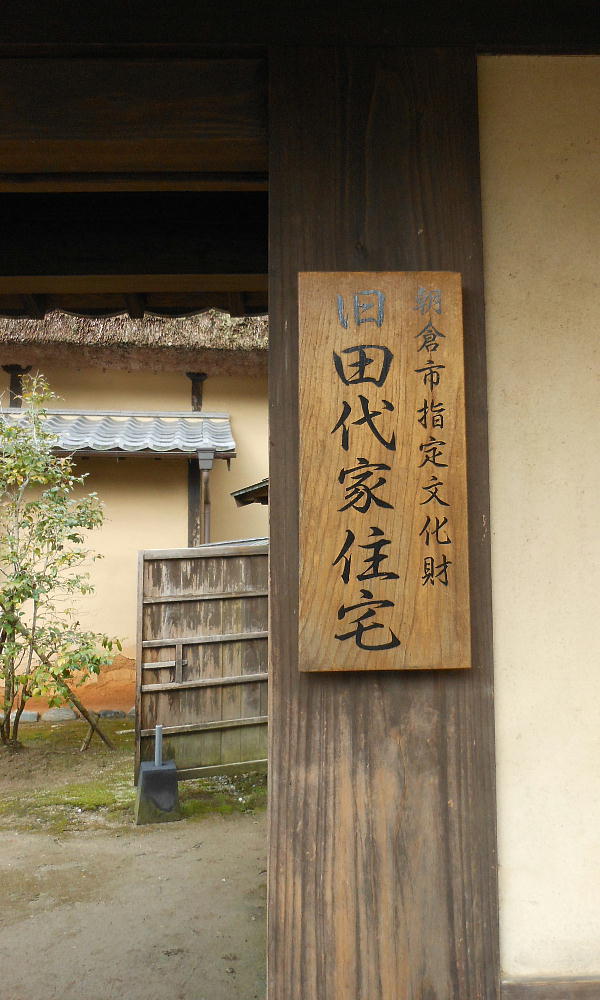 朝倉市指定文化財
旧田代家住宅